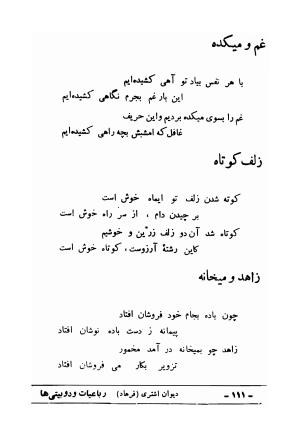 غم و میکده
با هر نفس بیاد تو آهی کشیده‌ایم
این بار غم بجرم نگاهی کشیده‌ایم
غم را بسوی میکده بردیم و این حریف
غافل که امشبش بچه راهی کشیده‌ایم
زلف کوتاه
کوته شدن زلف تو ایماه خوش است
بر چیدن دام ، از سر راه خوش است
کوتاه شد آن دو زلف زرّین و خوشیم
کاین رشتهٔ آرزوست، کوتاه خوش است
زاهد و میخانه
چون باده بجام خود فروشان افتاد
پیمانه ز دست باده نوشان افتاد
زاهد چو بمیخانه در آمد مخمور
تزویر بکار می فروشان افتاد
رباعیات و دوبیتی‌ها دیوان اشتری (فرهاد) - ۱۱۱ -